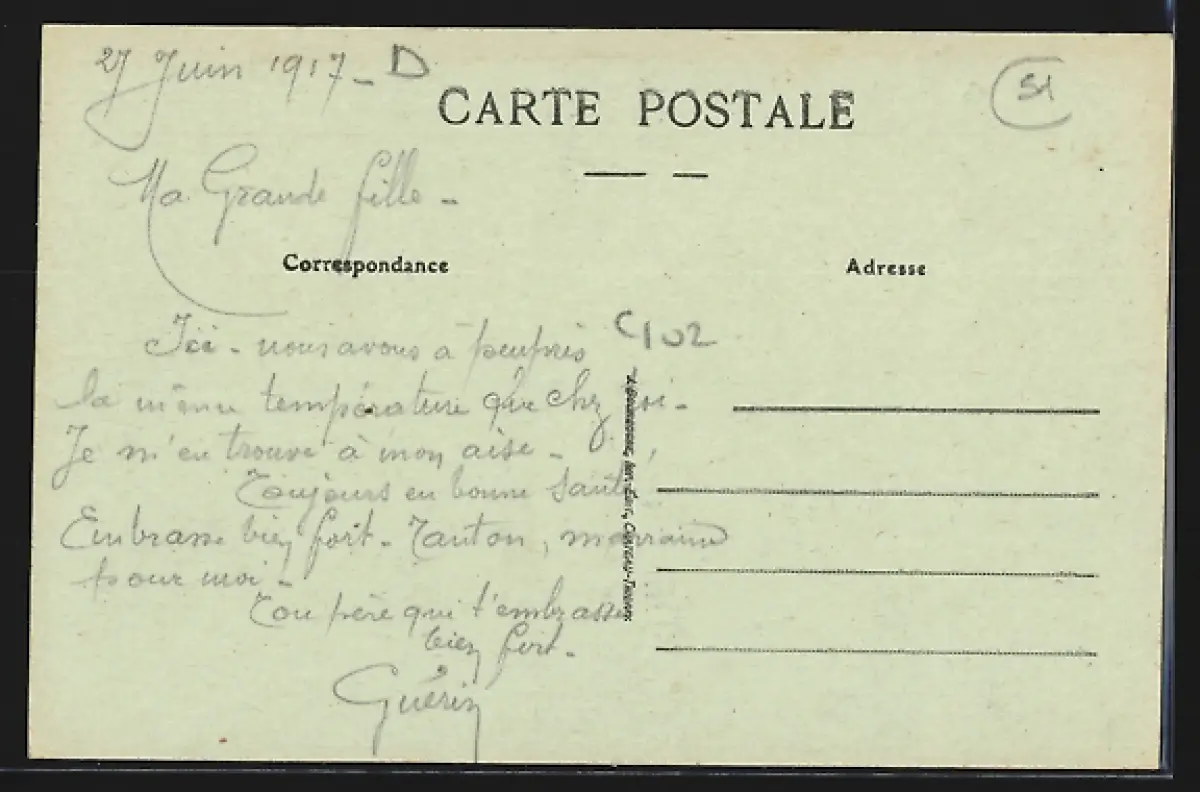 27 Juin 1917 - D
CARTE POSTALE
51
Ma Grande fille -
Correspondance
Adresse
Ici - nous avons à peu près
C102
la même température que chez toi -
Je m'en trouve à mon aise -
Toujours en bonne santé,
Embrasse bien fort - Tanton, marraine
pour moi -
Ton père qui t'embrasse
bien fort -
Guérin